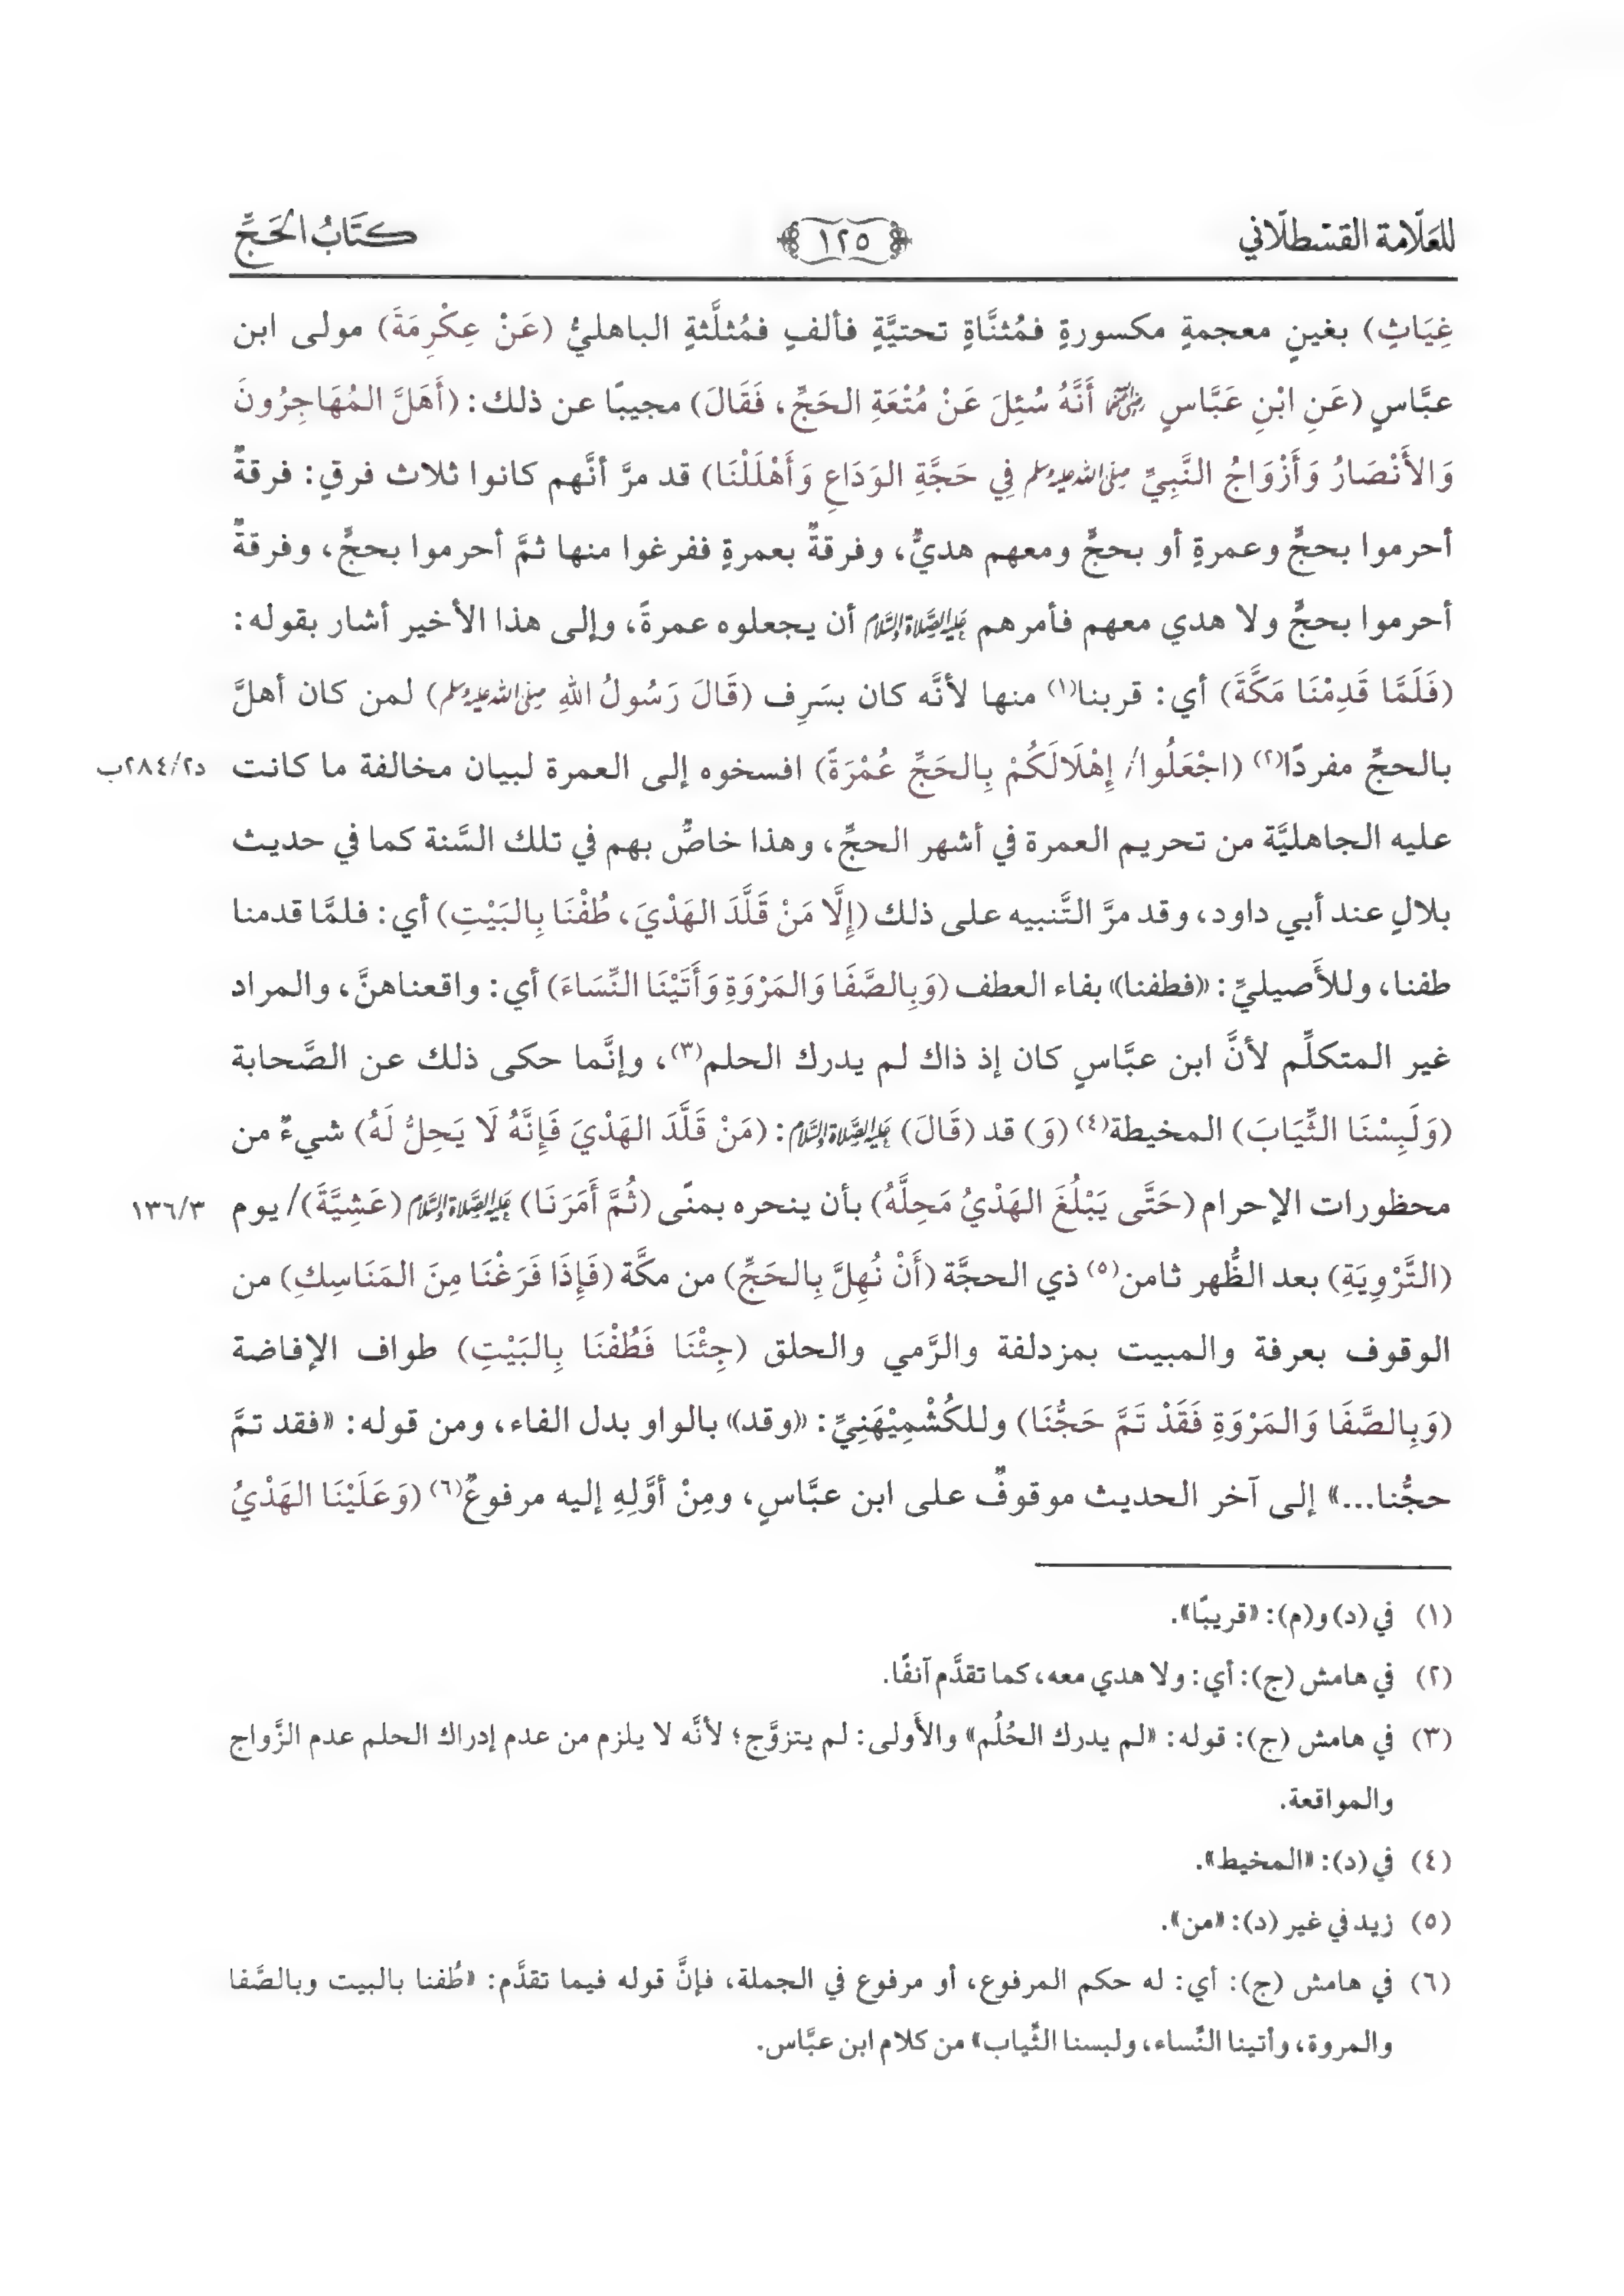 للعَلّامة القسْطلّاني
١٢٥
كتَابُ الحَجِّ
غِيَاثٍ) بغينٍ معجمةٍ مكسورةٍ فمُثنَّاةٍ تحتيَّةٍ فألفٍ فمُثلَّثةٍ الباهليُّ (عَنْ عِكْرِمَةَ) مولى ابن
عبَّاسٍ (عَنِ ابْنِ عَبَّاسٍ رضي الله عنهما أَنَّهُ سُئِلَ عَنْ مُتْعَةِ الحَجِّ، فَقَالَ) مجيبًا عن ذلك: (أَهَلَّ المُهَاجِرُونَ
وَالأَنْصَارُ وَأَزْوَاجُ النَّبِيِّ صلى الله عليه وسلم فِي حَجَّةِ الوَدَاعِ وَأَهْلَلْنَا) قد مرَّ أنَّهم كانوا ثلاث فرقٍ: فرقةٌ
أحرموا بحجٍّ وعمرةٍ أو بحجٍّ ومعهم هديٌّ، وفرقةٌ بعمرةٍ ففرغوا منها ثمَّ أحرموا بحجٍّ، وفرقةٌ
أحرموا بحجٍّ ولا هدي معهم فأمرهم عليه الصَّلاة والسَّلام أن يجعلوه عمرةً، وإلى هذا الأخير أشار بقوله:
(فَلَمَّا قَدِمْنَا مَكَّةَ) أي: قربنا(١) منها لأنَّه كان بسَرِف (قَالَ رَسُولُ اللهِ صلى الله عليه وسلم) لمن كان أهلَّ
بالحجِّ مفردًا(٢) (اجْعَلُوا/ إِهْلَالَكُمْ بِالحَجِّ عُمْرَةً) افسخوه إلى العمرة لبيان مخالفة ما كانت
د٢/٢٨٤ب
عليه الجاهليَّة من تحريم العمرة في أشهر الحجِّ، وهذا خاصٌّ بهم في تلك السَّنة كما في حديث
بلالٍ عند أبي داود، وقد مرَّ التَّنبيه على ذلك (إِلَّا مَنْ قَلَّدَ الهَدْيَ، طُفْنَا بِالبَيْتِ) أي: فلمَّا قدمنا
طفنا، وللأَصيليِّ: «فطفنا» بفاء العطف (وَبِالصَّفَا وَالمَرْوَةِ وَأَتَيْنَا النِّسَاءَ) أي: واقعناهنَّ، والمراد
غير المتكلِّم لأنَّ ابن عبَّاسٍ كان إذ ذاك لم يدرك الحلم(٣)، وإنَّما حكى ذلك عن الصَّحابة
(وَلَبِسْنَا الثِّيَابَ) المخيطة(٤) (وَ) قد (قَالَ) عليه الصَّلاة والسَّلام: (مَنْ قَلَّدَ الهَدْيَ فَإِنَّهُ لَا يَحِلُّ لَهُ) شيءٌ من
محظورات الإحرام (حَتَّى يَبْلُغَ الهَدْيُ مَحِلَّهُ) بأن ينحره بمنًى (ثُمَّ أَمَرَنَا) عليه الصَّلاة والسَّلام (عَشِيَّةَ)/ يوم
١٣٦/٣
(التَّرْوِيَةِ) بعد الظُّهر ثامن(٥) ذي الحجَّة (أَنْ نُهِلَّ بِالحَجِّ) من مكَّة (فَإِذَا فَرَغْنَا مِنَ المَنَاسِكِ) من
الوقوف بعرفة والمبيت بمزدلفة والرَّمي والحلق (جِئْنَا فَطُفْنَا بِالبَيْتِ) طواف الإفاضة
(وَبِالصَّفَا وَالمَرْوَةِ فَقَدْ تَمَّ حَجُّنَا) وللكُشْمِيْهَنِيِّ: «وقد» بالواو بدل الفاء، ومن قوله: «فقد تمَّ
حجُّنا...» إلى آخر الحديث موقوفٌ على ابن عبَّاسٍ، ومِنْ أوَّلِهِ إليه مرفوعٌ(٦) (وَعَلَيْنَا الهَدْيُ
(١) في (د) و(م): «قريبًا».
(٢) في هامش (ج): أي: ولا هدي معه، كما تقدَّم آنفًا.
(٣) في هامش (ج): قوله: «لم يدرك الحُلُم» والأَولى: لم يتزوَّج؛ لأنَّه لا يلزم من عدم إدراك الحلم عدم الزَّواج
والمواقعة.
(٤) في (د): «المخيط».
(٥) زيد في غير (د): «من».
(٦) في هامش (ج): أي: له حكم المرفوع، أو مرفوع في الجملة، فإنَّ قوله فيما تقدَّم: «طُفنا بالبيت وبالصَّفا
والمروة، وأتينا النِّساء، ولبسنا الثِّياب» من كلام ابن عبَّاس.